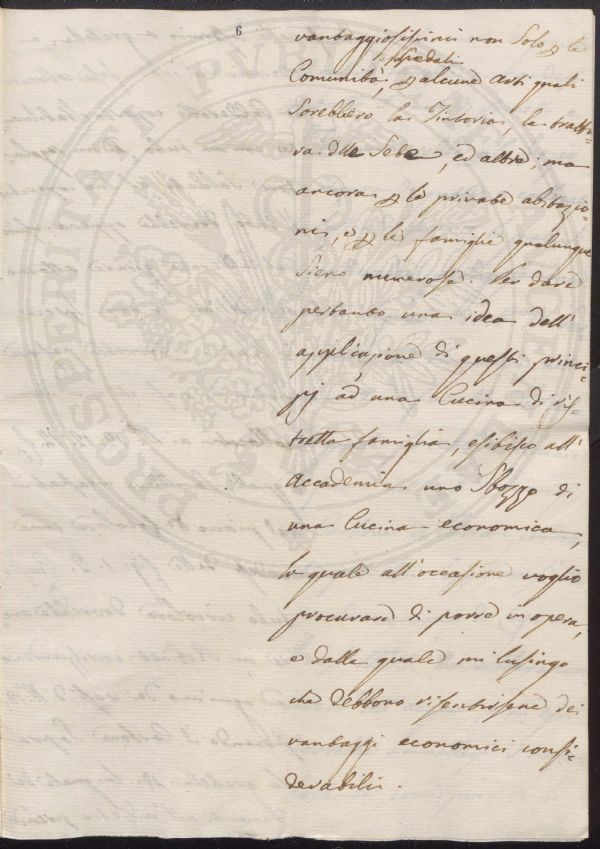 6
vantaggiosissimi non solo p le
spedali
Comunità, p alcune arti quali
sorebbero la Tintoria, la trattu-
ra delle Sete, ed altre; ma
ancora p le private abitazio-
ni, e p le famiglie qualunque
sieno numerose. Per dare
pertanto una idea dell'
applicazione di questi princi-
pj ad una Cucina di ris-
tretta famiglia, esibisco all'
Accademia uno Sbozzo di
una Cucina economica,
la quale all'occasione voglio
procurare di porre in opera,
e dalla quale mi lusingo
che debbono risentirsene dei
vantaggi economici consi-
derabili.